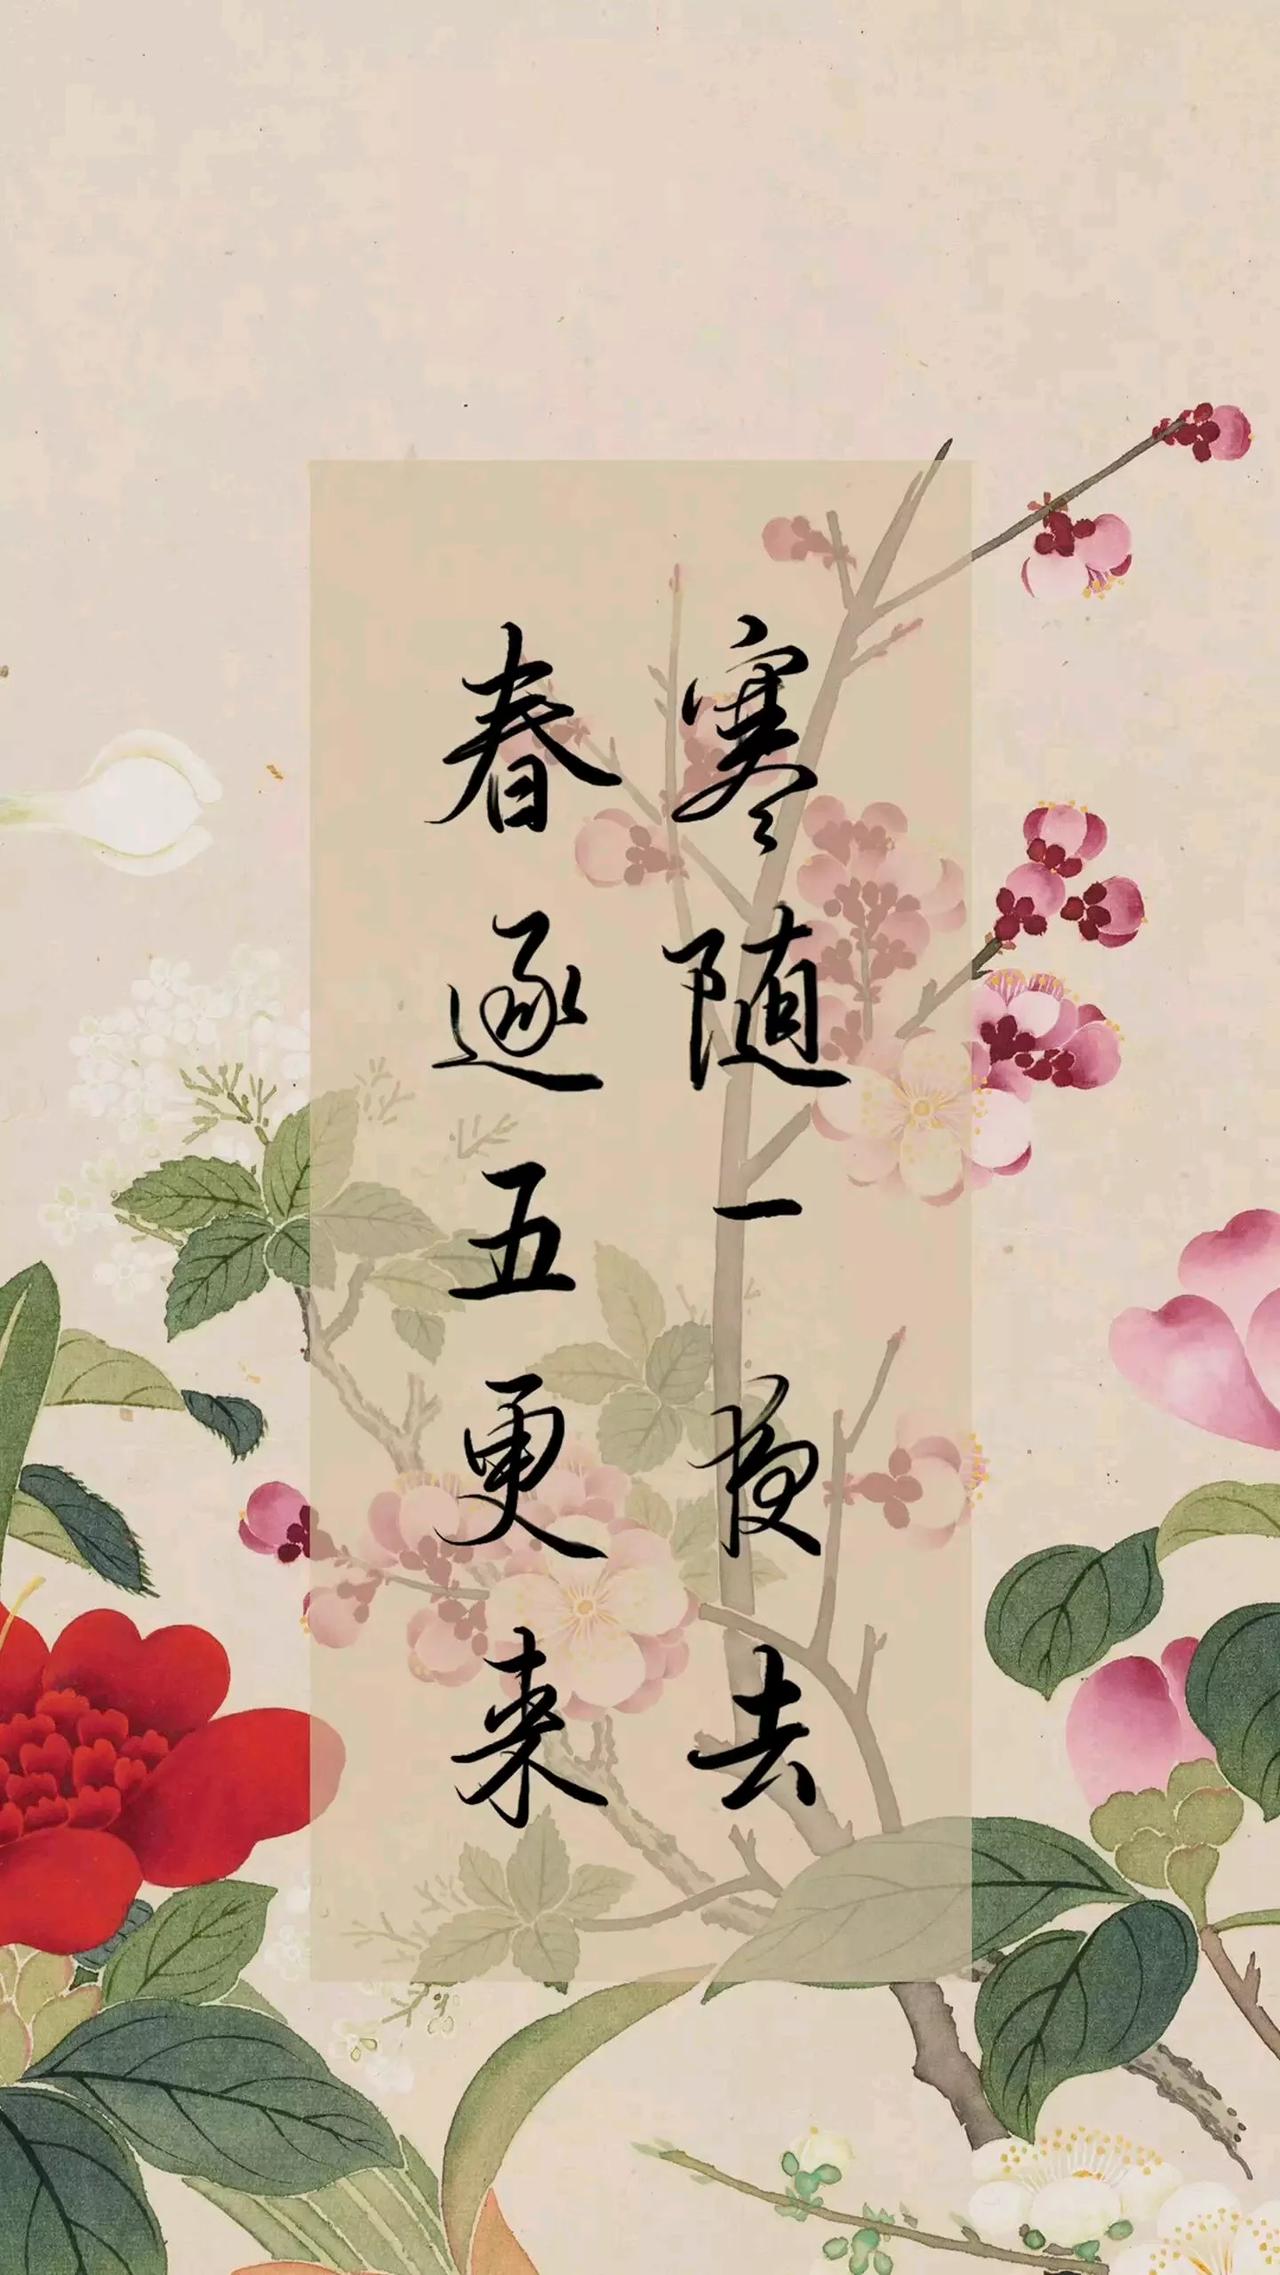 寒随一夜去
春逐五更来